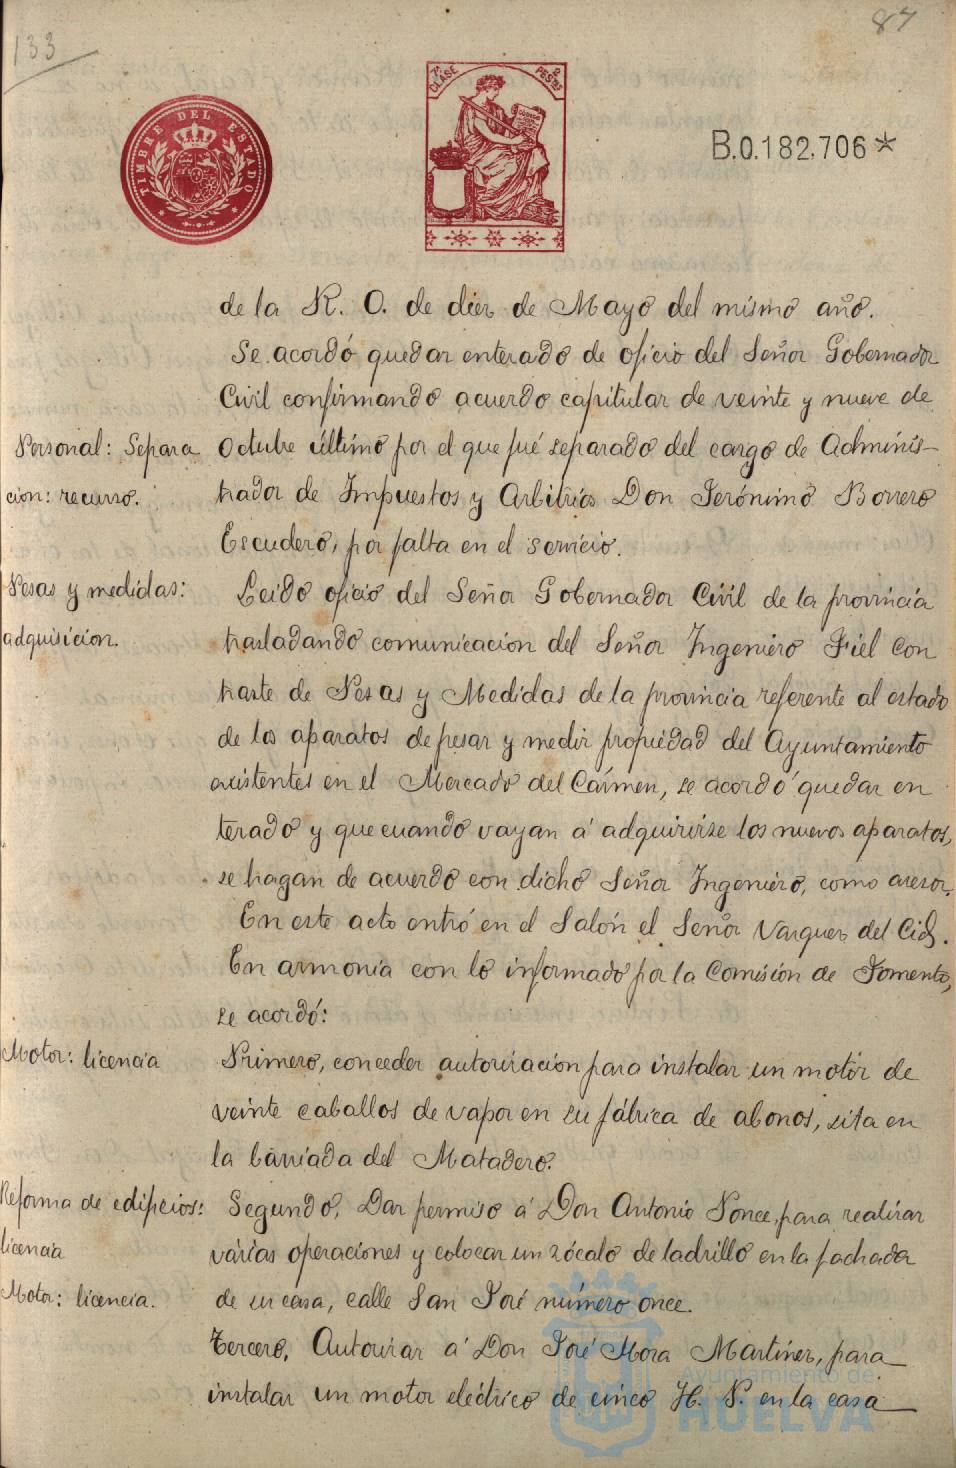 133
87
TIMBRE DEL ESTADO
7ª CLASE
2 PESETAS
B.0.182,706*
de la R. O. de diez de Mayo del mismo año.
Se acordó quedar enterado de oficio del Señor Gobernador
Civil confirmando acuerdo capitular de veinte y nueve de
Personal: Separa
cion: recurso.
Octubre último por el que fué separado del cargo de Adminis-
trador de Impuestos y Arbitrios Don Jerónimo Borrero
Escudero, por falta en el servicio.
Pesas y medidas:
adquisicion.
Leido oficio del Señor Gobernador Civil de la provincia
trasladando comunicacion del Señor Ingeniero Fiel Con
traste de Pesas y Medidas de la provincia referente al estado
de los aparatos de pesar y medir propiedad del Ayuntamiento
existentes en el Mercado del Cármen, se acordó quedar en
terado y que cuando vayan á adquirirse los nuevos aparatos,
se hagan de acuerdo con dicho Señor Ingeniero, como asesor.
En este acto entró en el Salón el Señor Vazquez del Cid.
En armonia con lo informado por la Comisión de Fomento,
se acordó:
Motor: licencia
Primero, conceder autorizacion para instalar un motór de
veinte caballos de vapor en su fábrica de abonos, sita en
la barriada del Matadero.
Reforma de edificios:
licencia
Segundo, Dar permiso á Don Antonio Ponce, para realizar
várias operaciones y colocar un zócalo de ladrillo en la fachada
de su casa, calle San José número once.
Motor: licencia.
Tercero, Autorizar á Don José Mora Martinez, para
instalar un motor eléctrico de cinco H. P. en la casa
Ayuntamiento de
HUELVA